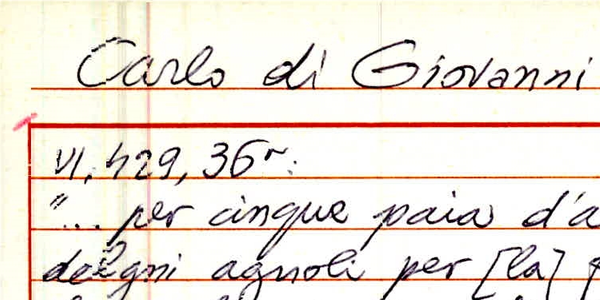 Carlo di Giovanni
VI, 429, 36r:
"... per cinque paia d'a
degni agnoli per [la]